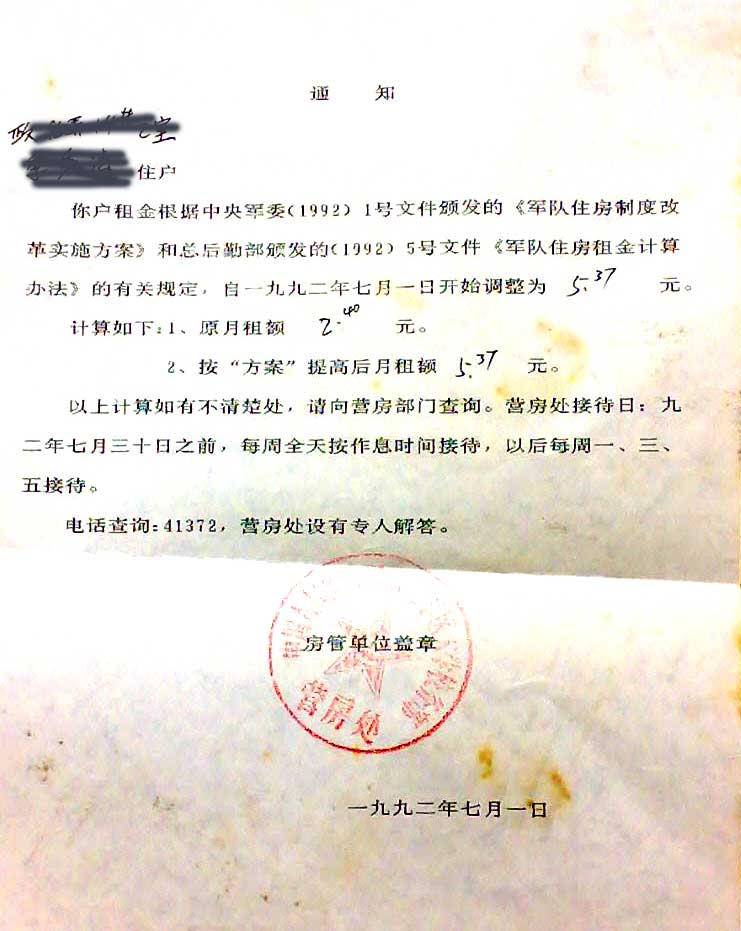 通 知
住户
你户租金根据中央军委(1992)1号文件颁发的《军队住房制度改
革实施方案》和总后勤部颁发的(1992)5号文件《军队住房租金计算
办法》的有关规定,自一九九二年七月一日开始调整为 5.37 元。
计算如下:1、原月租额 2.40 元。
2、按“方案”提高后月租额 5.37 元。
以上计算如有不清楚处,请向营房部门查询。营房处接待日:九
二年七月三十日之前,每周全天按作息时间接待,以后每周一、三、
五接待。
电话查询:41372,营房处设有专人解答。
房管单位盖章
营房处
一九九二年七月一日